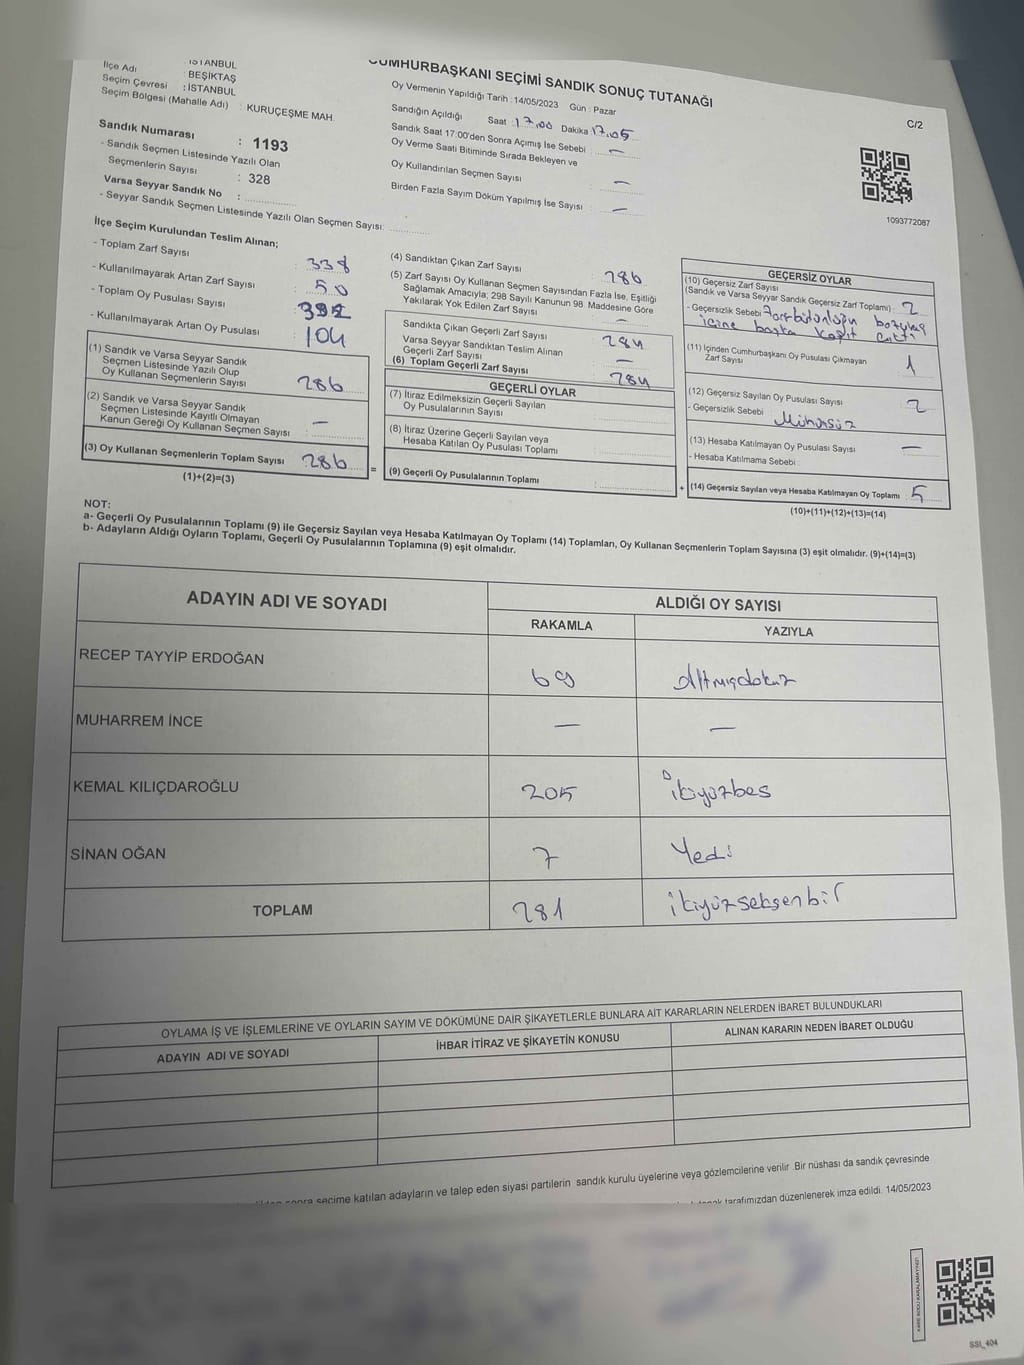 İlçe Adı : BEŞİKTAŞ
Seçim Çevresi : İSTANBUL
Seçim Bölgesi (Mahalle Adı) : KURUÇEŞME MAH.
Sandık Numarası : 1193
- Sandık Seçmen Listesinde Yazılı Olan
Seçmenlerin Sayısı : 328
Varsa Seyyar Sandık No :
- Seyyar Sandık Seçmen Listesinde Yazılı Olan Seçmen Sayısı:
CUMHURBAŞKANI SEÇİMİ SANDIK SONUÇ TUTANAĞI
Oy Vermenin Yapıldığı Tarih : 14/05/2023 Gün : Pazar
Sandığın Açıldığı Saat : 17.00 Dakika 17.05
Sandık Saat 17:00'den Sonra Açımış İse Sebebi : —
Oy Verme Saati Bitiminde Sırada Bekleyen ve
Oy Kullandırılan Seçmen Sayısı : —
Birden Fazla Sayım Döküm Yapılmış İse Sayısı : —
C/2
1093772087
İlçe Seçim Kurulundan Teslim Alınan;
- Toplam Zarf Sayısı : 338
- Kullanılmayarak Artan Zarf Sayısı : 50
- Toplam Oy Pusulası Sayısı :
- Kullanılmayarak Artan Oy Pusulası : 104
(1) Sandık ve Varsa Seyyar Sandık
Seçmen Listesinde Yazılı Olup
Oy Kullanan Seçmenlerin Sayısı : 286
(2) Sandık ve Varsa Seyyar Sandık
Seçmen Listesinde Kayıtlı Olmayan
Kanun Gereği Oy Kullanan Seçmen Sayısı : —
(3) Oy Kullanan Seçmenlerin Toplam Sayısı : 286
(1)+(2)=(3)
=
(4) Sandıktan Çıkan Zarf Sayısı : 286
(5) Zarf Sayısı Oy Kullanan Seçmen Sayısından Fazla İse, Eşitliği
Sağlamak Amacıyla, 298 Sayılı Kanunun 98. Maddesine Göre
Yakılarak Yok Edilen Zarf Sayısı : —
Sandıkta Çıkan Geçerli Zarf Sayısı : 284
Varsa Seyyar Sandıktan Teslim Alınan
Geçerli Zarf Sayısı : —
(6) Toplam Geçerli Zarf Sayısı : 284
GEÇERLİ OYLAR
(7) İtiraz Edilmeksizin Geçerli Sayılan
Oy Pusulalarının Sayısı :
(8) İtiraz Üzerine Geçerli Sayılan veya
Hesaba Katılan Oy Pusulası Toplamı :
(9) Geçerli Oy Pusulalarının Toplamı :
+
GEÇERSİZ OYLAR
(10) Geçersiz Zarf Sayısı
(Sandık ve Varsa Seyyar Sandık Geçersiz Zarf Toplamı) : 2
- Geçersizlik Sebebi : Zarf bütünlüğü bozulmuş
içine başka kağıt çıktı
(11) İçinden Cumhurbaşkanı Oy Pusulası Çıkmayan
Zarf Sayısı : 1
(12) Geçersiz Sayılan Oy Pusulası Sayısı : 2
- Geçersizlik Sebebi : Mühürsüz
(13) Hesaba Katılmayan Oy Pusulası Sayısı : —
- Hesaba Katılmama Sebebi :
(14) Geçersiz Sayılan veya Hesaba Katılmayan Oy Toplamı : 5
(10)+(11)+(12)+(13)=(14)
NOT:
a- Geçerli Oy Pusulalarının Toplamı (9) ile Geçersiz Sayılan veya Hesaba Katılmayan Oy Toplamı (14) Toplamları, Oy Kullanan Seçmenlerin Toplam Sayısına (3) eşit olmalıdır. (9)+(14)=(3)
b- Adayların Aldığı Oyların Toplamı, Geçerli Oy Pusulalarının Toplamına (9) eşit olmalıdır.
ADAYIN ADI VE SOYADI ALDIĞI OY SAYISI
RAKAMLA YAZIYLA
RECEP TAYYİP ERDOĞAN 69 Altmışdokuz
MUHARREM İNCE — —
KEMAL KILIÇDAROĞLU 205 ikiyüzbeş
SİNAN OĞAN 7 Yedi
TOPLAM 281 ikiyüzseksenbir
OYLAMA İŞ VE İŞLEMLERİNE VE OYLARIN SAYIM VE DÖKÜMÜNE DAİR ŞİKAYETLERLE BUNLARA AİT KARARLARIN NELERDEN İBARET BULUNDUKLARI
ADAYIN ADI VE SOYADI İHBAR İTİRAZ VE ŞİKAYETİN KONUSU ALINAN KARARIN NEDEN İBARET OLDUĞU
sonra seçime katılan adayların ve talep eden siyasi partilerin sandık kurulu üyelerine veya gözlemcilerine verilir. Bir nüshası da sandık çevresinde
tarafımızdan düzenlenerek imza edildi. 14/05/2023
SSI_404